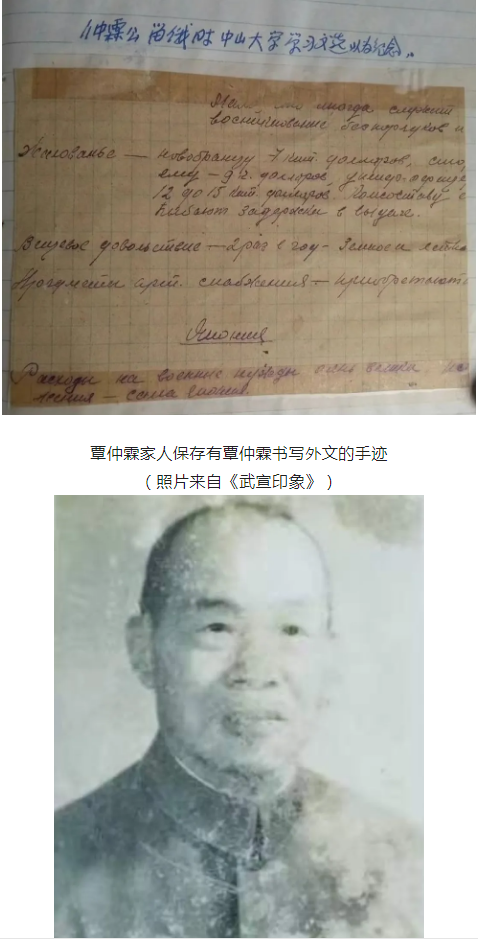 仲霖公留俄时中山大学学习以为纪念。
иногда служит
возникновение беспорядков и
Жалованье — новобранцу 7 кит. долларов,
ему - 9 к. долларов, унтер-офице
12 до 15 кит. долларов. Комсоставу
бывают задержки в выдаче.
Вещевое довольствие — 2 раз в год - Зимнее и летн
арт. снабжения — приобретают
Япония
Расходы на военные нужды очень велики
— сама Япония.
覃仲霖家人保存有覃仲霖书写外文的手迹
（照片来自《武宣印象》）